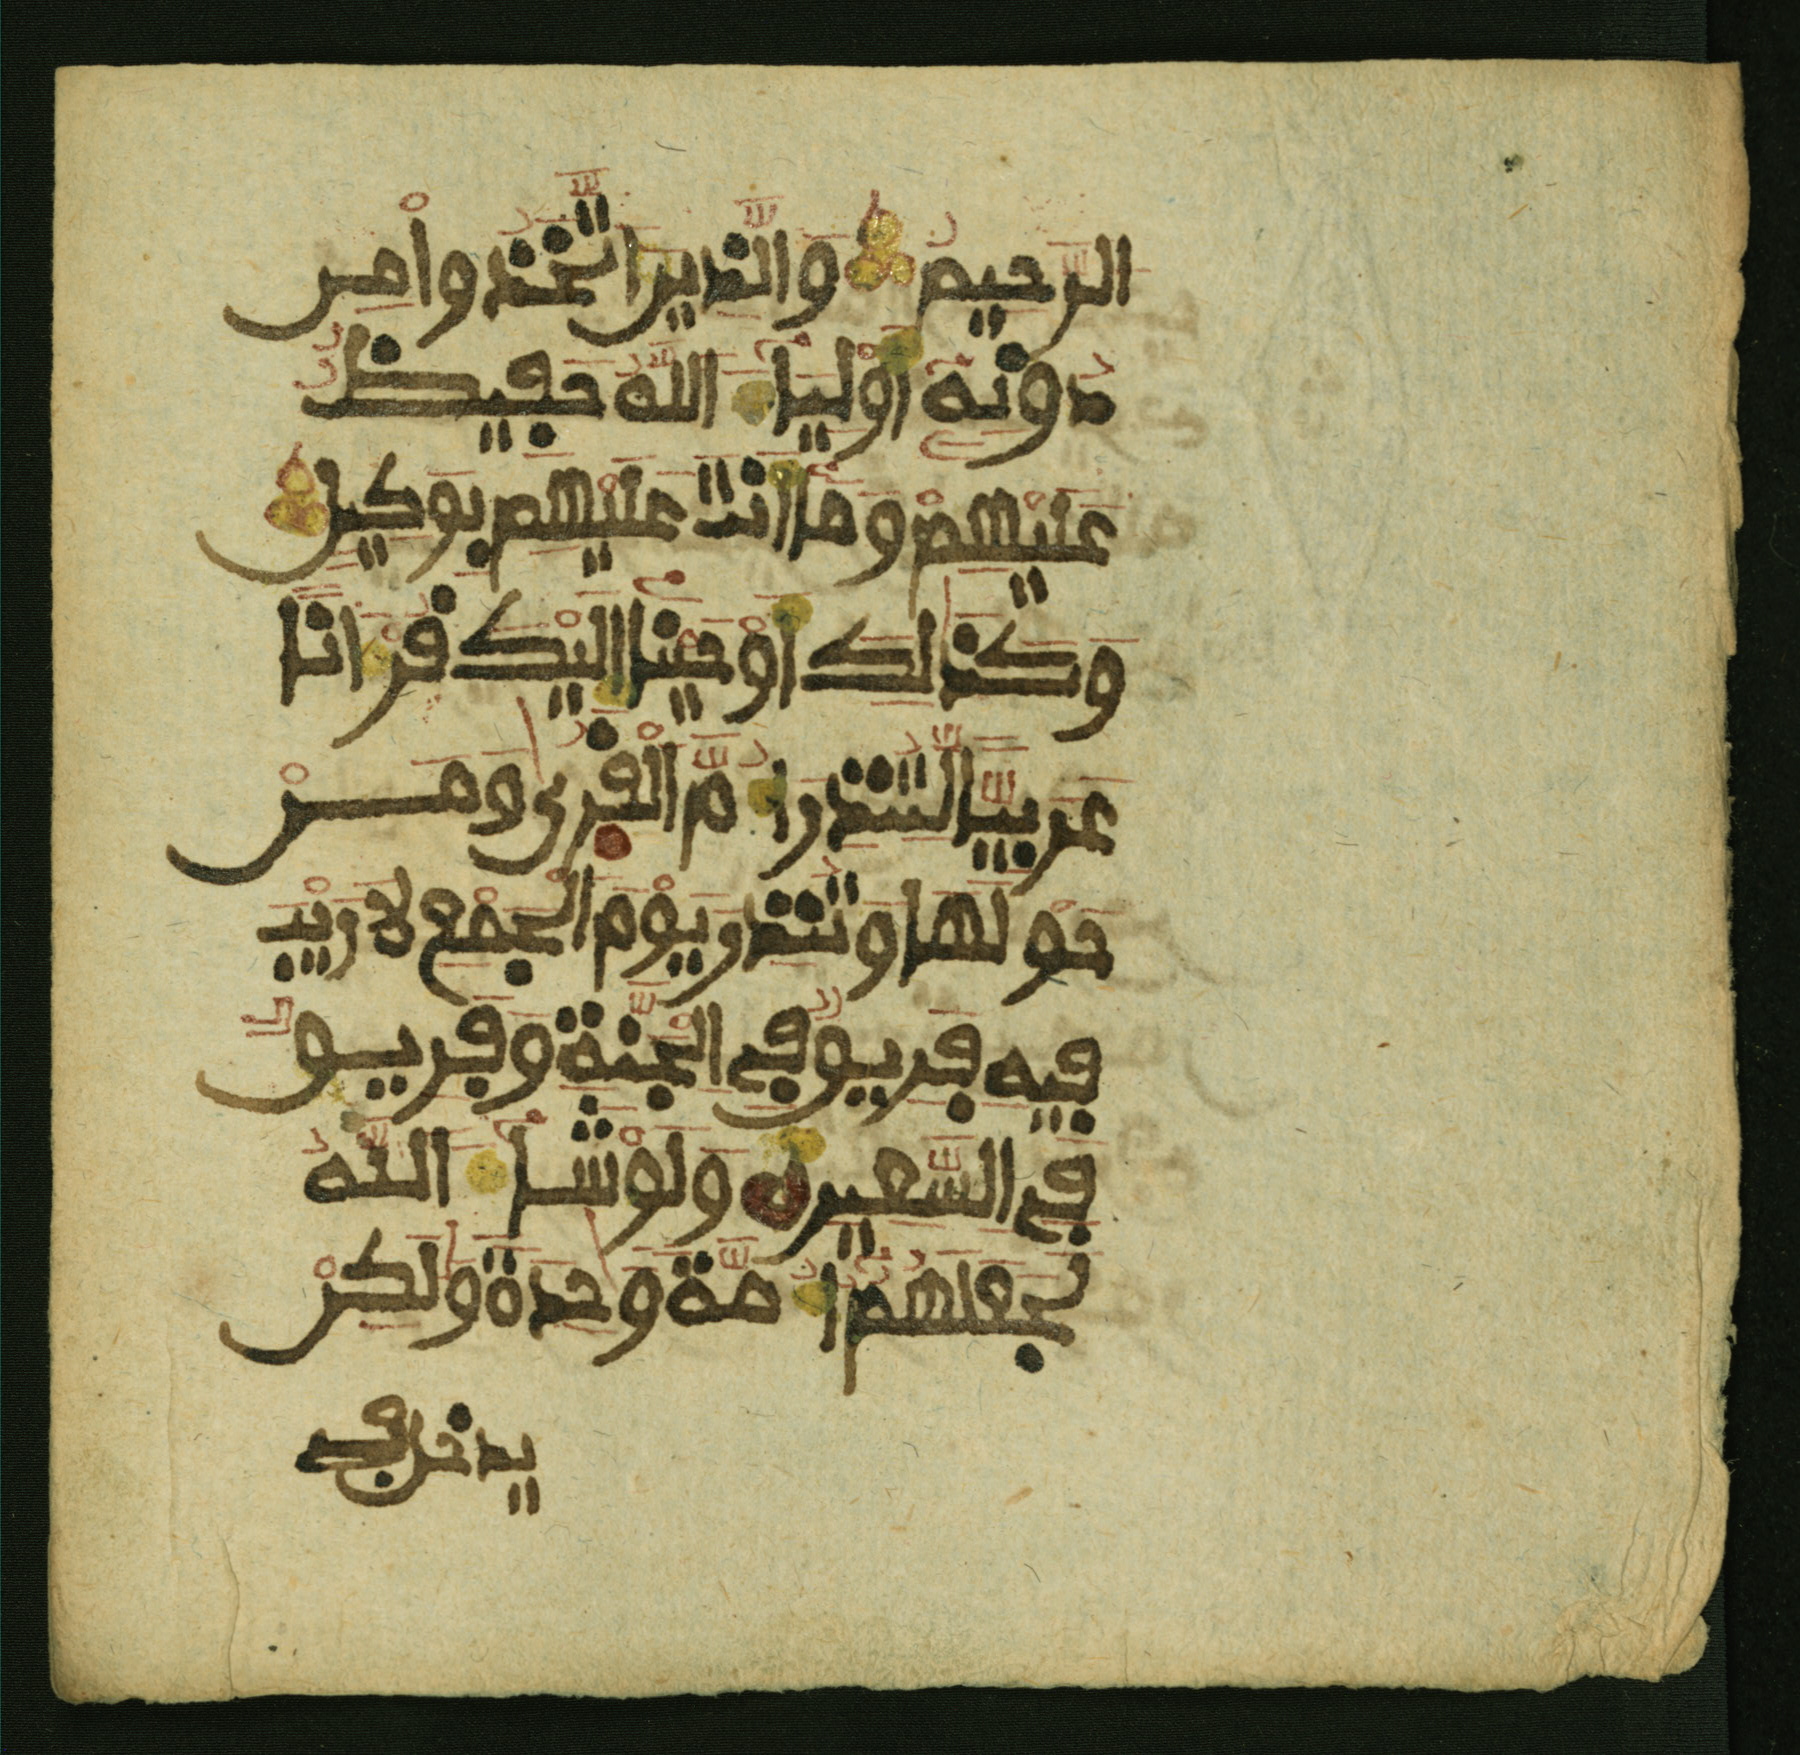 الرحيم والذين اتخذوا من
دونه اولياء الله حفيظ
عليهم وما انت عليهم بوكيل
وكذلك اوحينا اليك قرءانا
عربيا لتنذر ام القرى ومن
حولها وتنذر يوم الجمع لا ريب
فيه فريق في الجنة وفريق
في السعير ولو شاء الله
لجعلهم امة وحدة ولكن
يدخل في